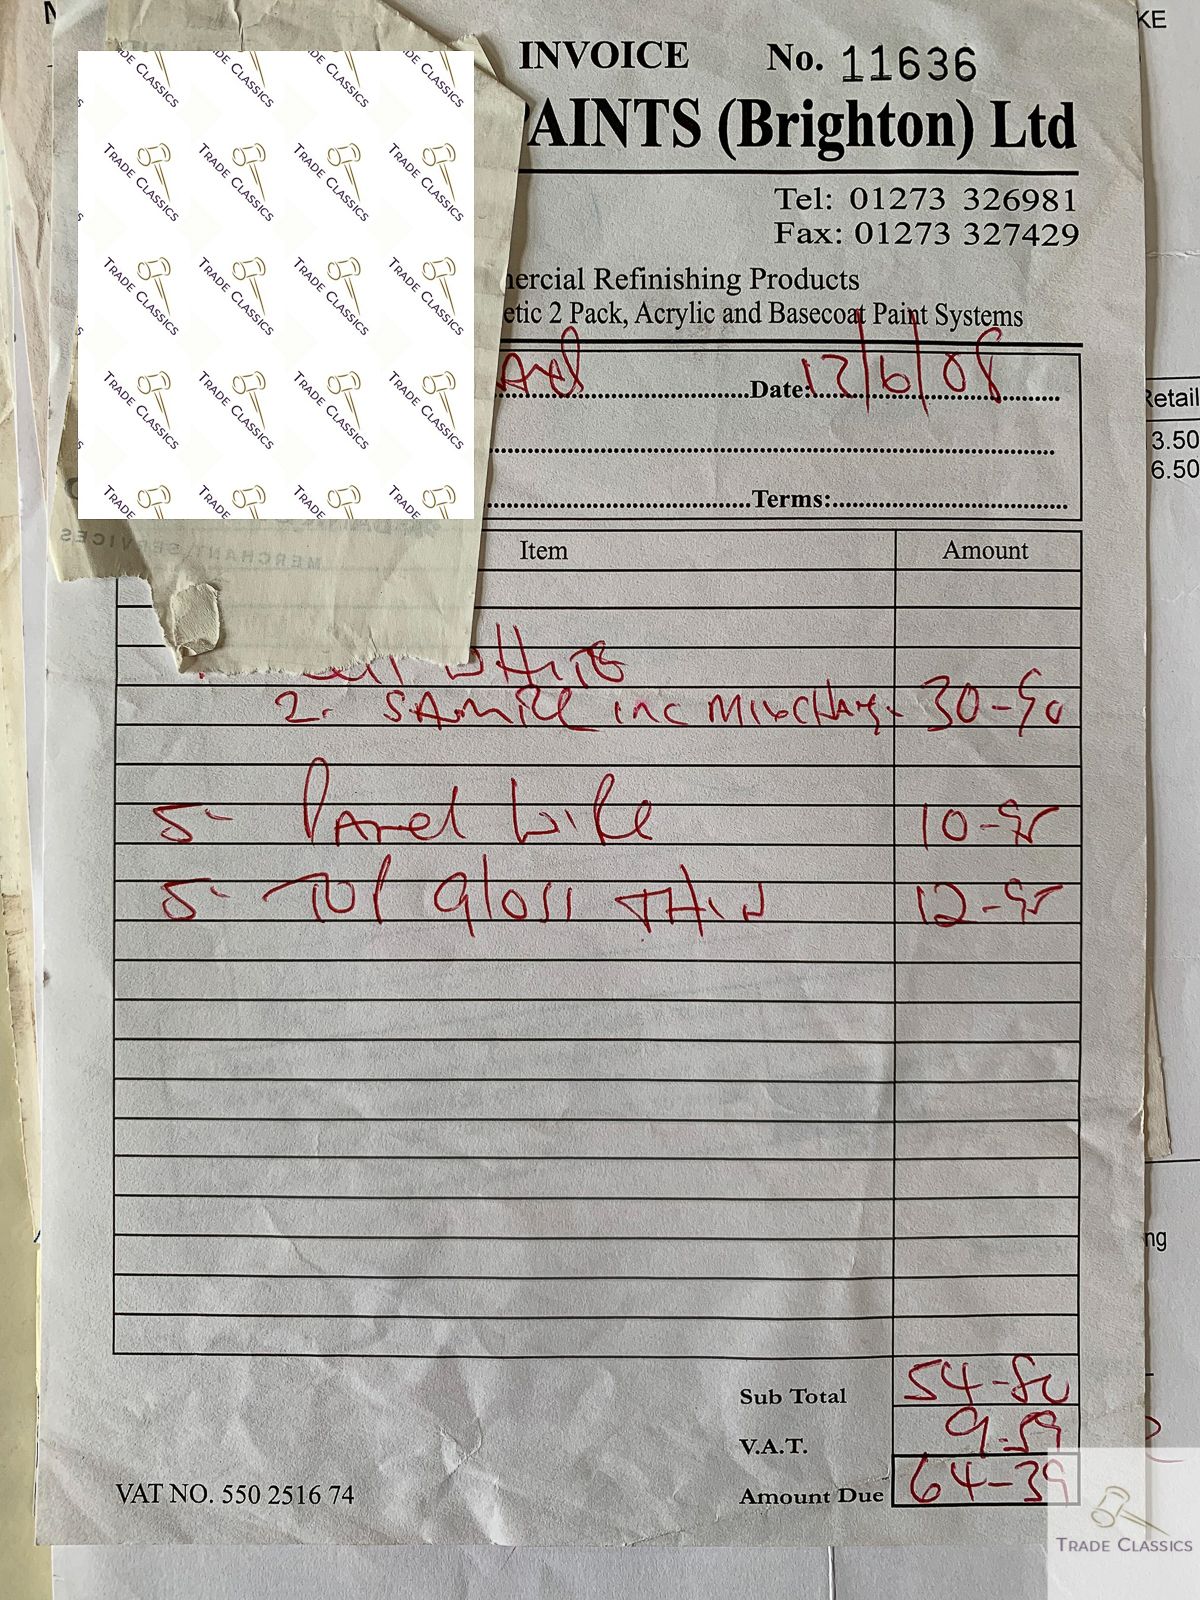 INVOICE No. 11636
PAINTS (Brighton) Ltd
Tel: 01273 326981
Fax: 01273 327429
Refinishing Products
2 Pack, Acrylic and Basecoat Paint Systems
Date: 12/6/08
Terms:
MERCHANT SERVICES
Item Amount
WHITE
2. inc 30-90
5- Panel wipe 10-95
5- gloss THIN 12-95
Sub Total 54-80
V.A.T. 9-59
VAT NO. 550 2516 74 Amount Due 64-39
KE
Retail
3.50
6.50
ng
TRADE CLASSICS
TRADE CLASSICS